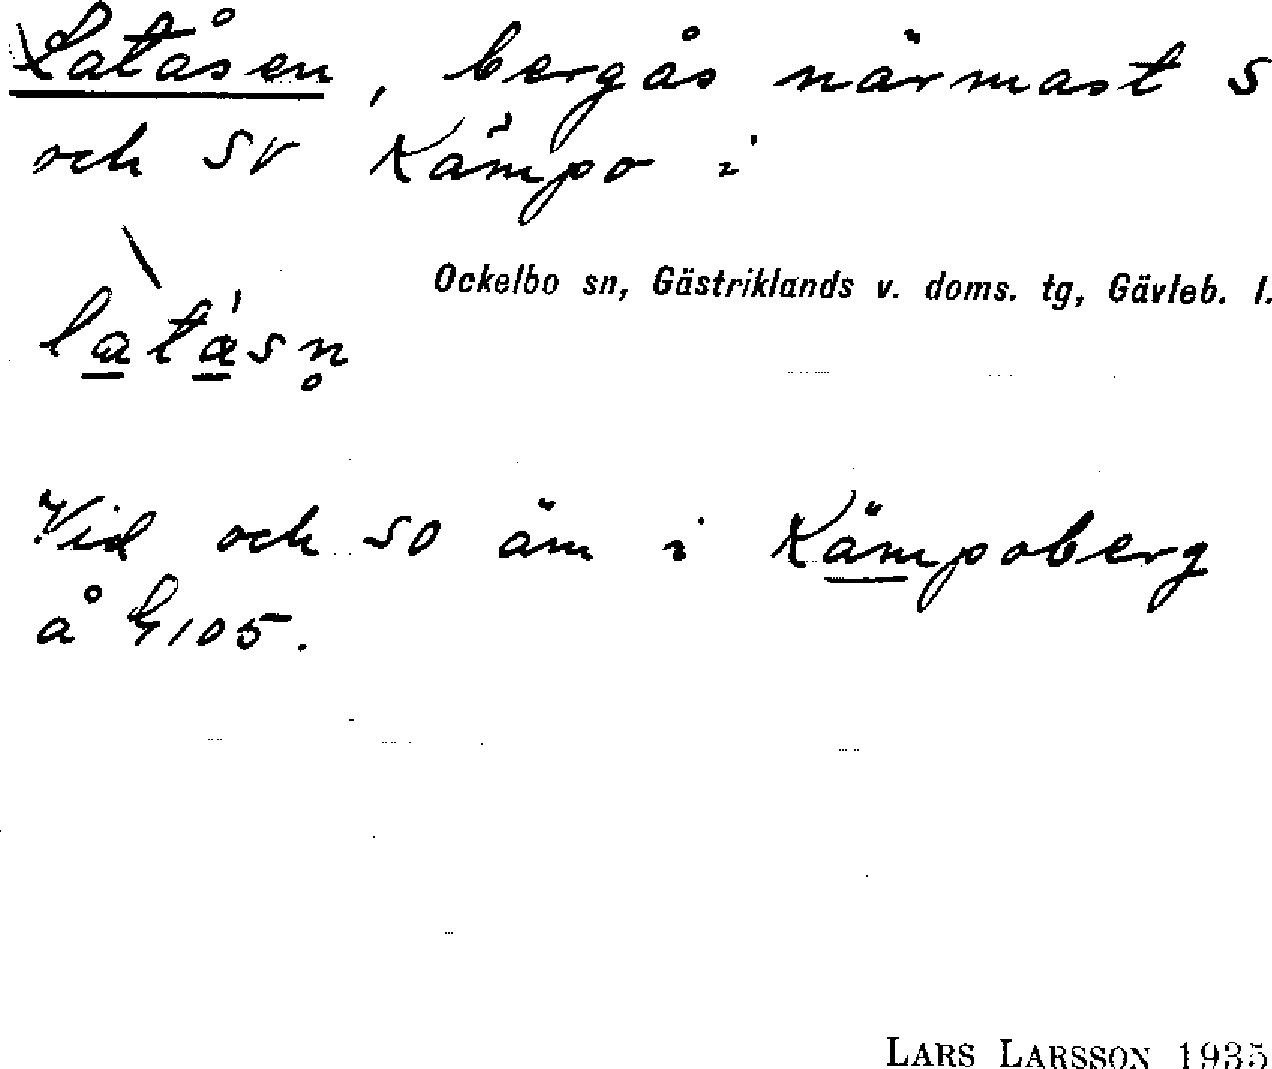 Latåsen, bergås närmast S
och SV Kämpo i
Ockelbo sn, Gästriklands v. doms. tg, Gävleb. l.
latásn̥
Vid och SO äm i Kämpoberg
å G105.
LARS LARSSON 1935